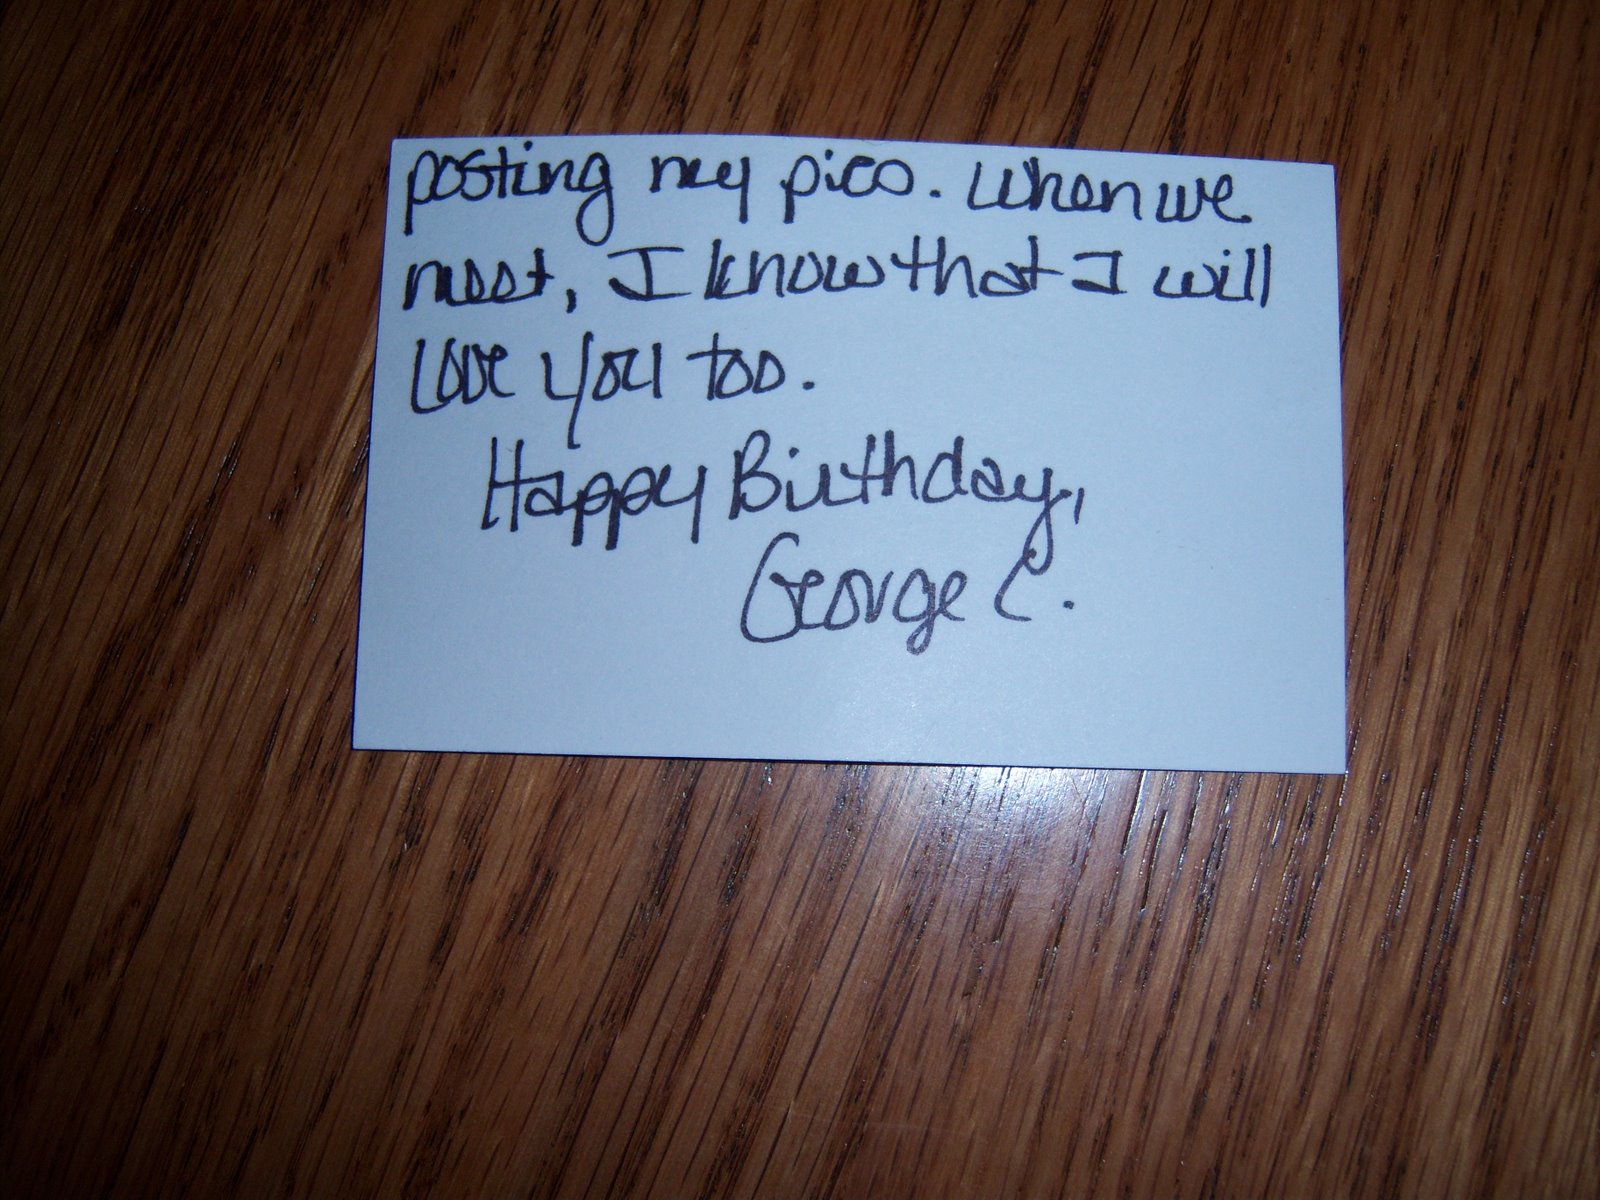 posting my pics. When we
meet, I know that I will
love you too.
Happy Birthday,
George C.